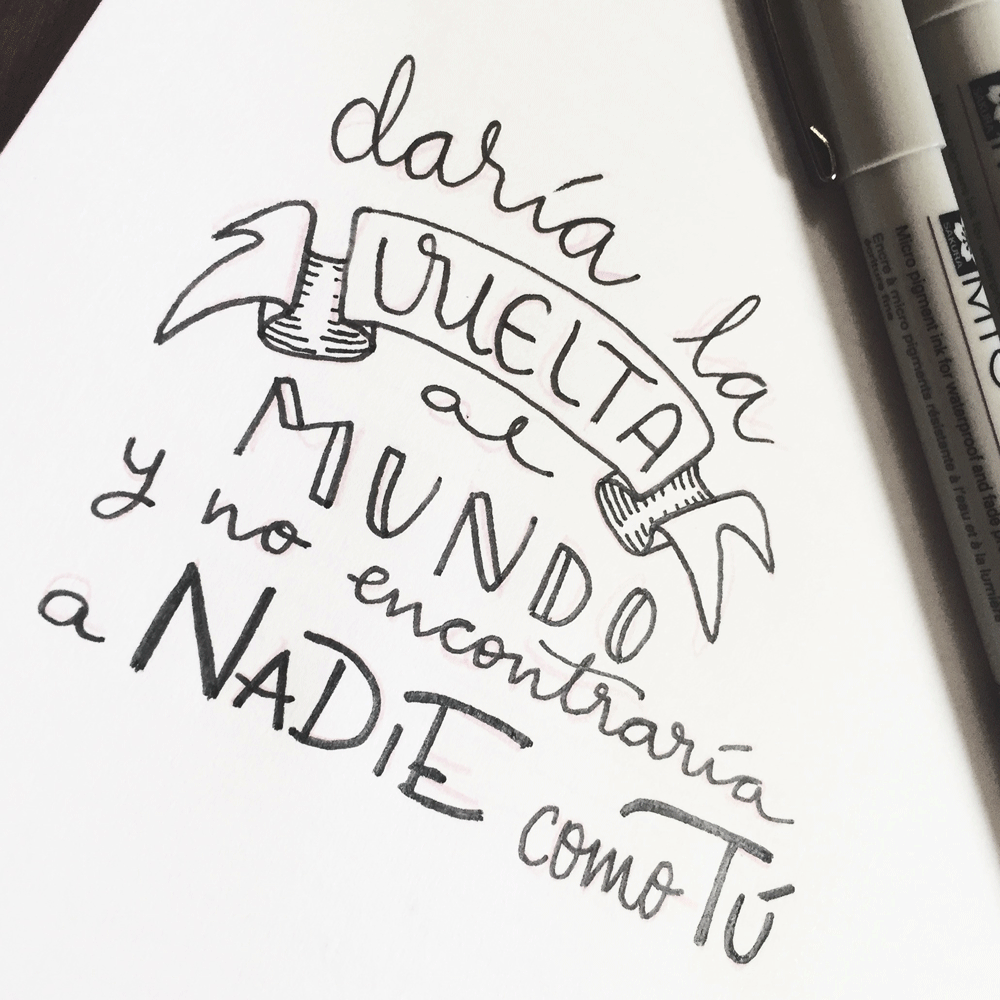 daría la
VUELTA
al
MUNDO
y no encontraría
a NADiE como TÚ
SAKURA
Micro pigment ink for waterproof and fade
Encre à micro pigments résistante à l'eau et à la lumière
écriture fine